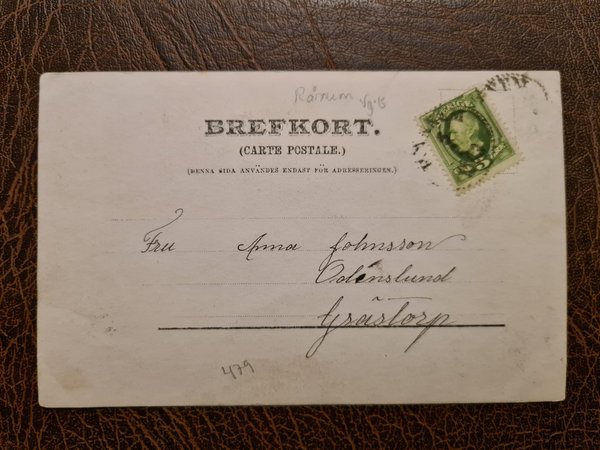 Rånum Vg-15
BREFKORT.
(CARTE POSTALE.)
(DENNA SIDA ANVÄNDES ENDAST FÖR ADRESSERINGEN.)
SVERIGE
5
Fru Anna Johnsson
Odenslund
Grästorp
479